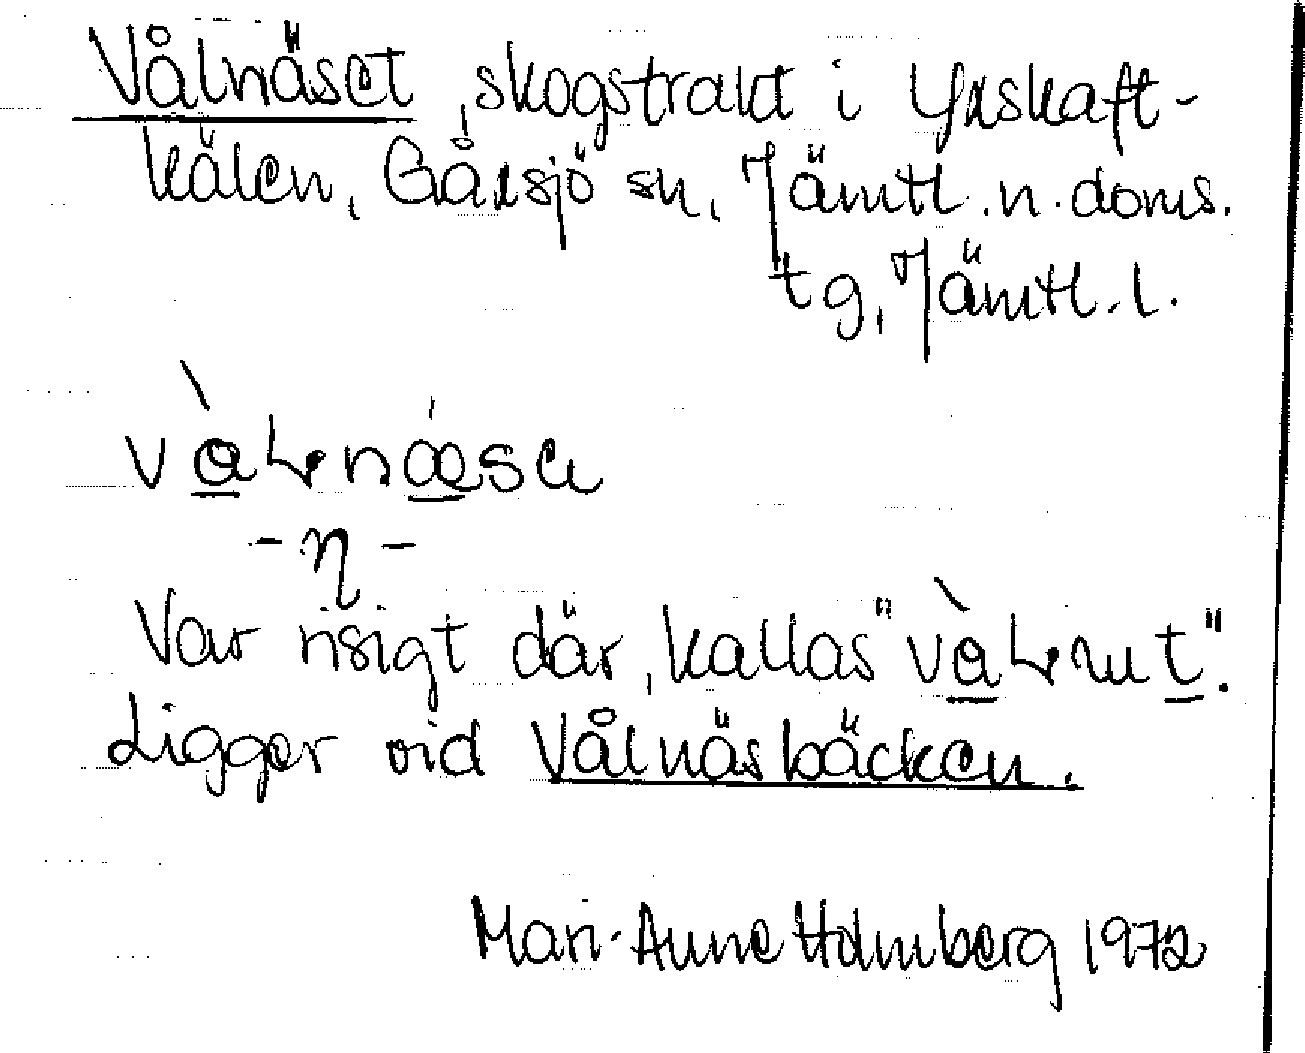 Vålnäset, skogstrakt i Yxskaft-
kälen, Gåxsjö sn, Jämtl. n. doms.
tg, Jämtl. l.
-η-
Var risigt där, kallas "
Ligger vid Vålnäsbäcken.
Mari-Anne Holmberg 1972